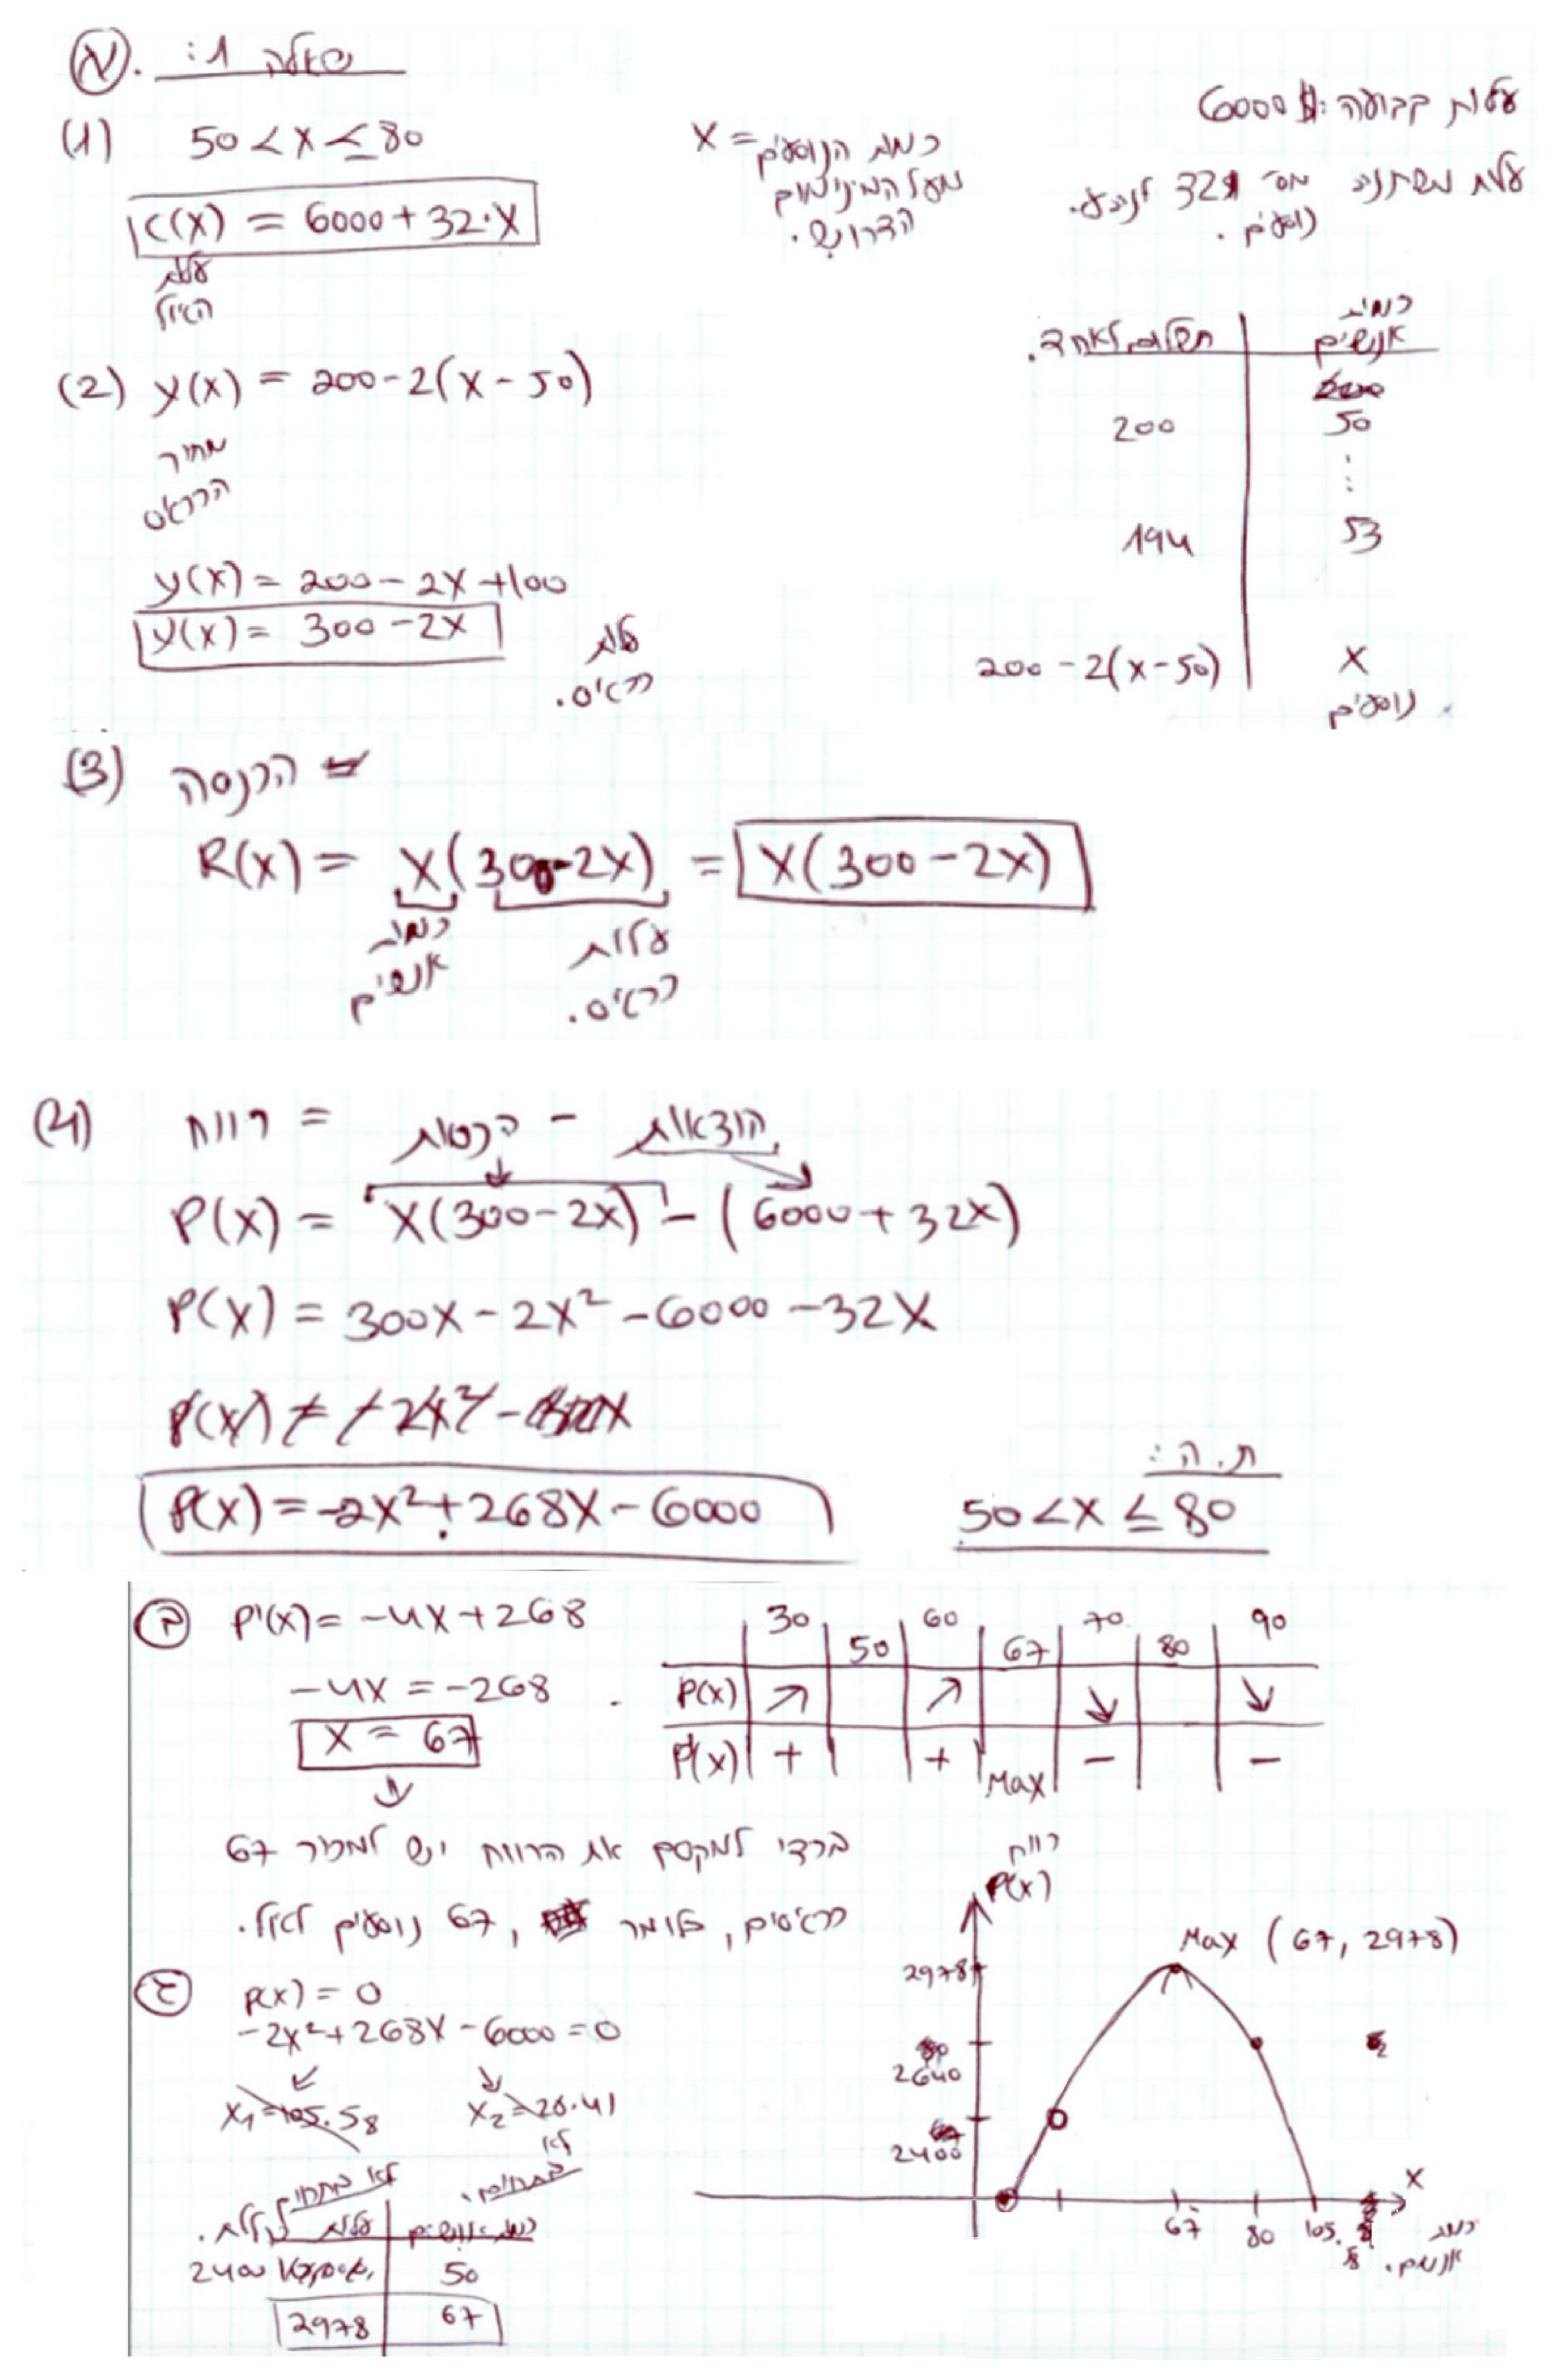 א. שאלה 1:
עלות קבועה: $6000
(1) 50 < x ≤ 80
x = כמות הנוסעים
מעל המינימום
הדרוש.
עלות משתנה 32$ לנוסע.
נוסעים.
C(x) = 6000 + 32·x
עלות
הטיול
תשלום לאחד. | כמות אנשים
200 | 50
⋮
194 | 53
200 - 2(x - 50) | x נוסעים
(2) y(x) = 200 - 2(x - 50)
מחיר
הכרטיס
y(x) = 200 - 2x + 100
y(x) = 300 - 2x
עלות
כרטיס.
(3) הכנסה =
R(x) = x(300 - 2x) = x(300 - 2x)
כמות אנשים
עלות כרטיס.
(4) רווח = הכנסות - הוצאות
P(x) = x(300 - 2x) - (6000 + 32x)
P(x) = 300x - 2x² - 6000 - 32x
P(x) = -2x² -
P(x) = -2x² + 268x - 6000
ת.ה:
50 < x ≤ 80
ב P'(x) = -4x + 268
-4x = -268
x = 67
30 50 60 67 70 80 90
P(x) ↗ ↗ ↘ ↘
P'(x) + + Max - -
בכדי למקסם את הרווח יש למכור 67
כרטיסים, כלומר, 67 נוסעים לטיול.
רווח
P(x)
Max (67, 2978)
2978
2640
2400
67 80 105.58
x
כמות
אנשים.
ג P(x) = 0
-2x² + 268x - 6000 = 0
x₁ = 105.58 x₂ = 28.41
לא בתחום
לא בתחום.
עלות כוללת. | כמות אנשים
2400 | 50
2978 | 67